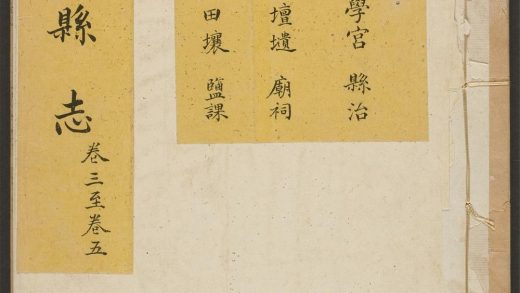 學宮 縣治
壇壝 廟祠
田壤 鹽課
縣志 卷三至卷五